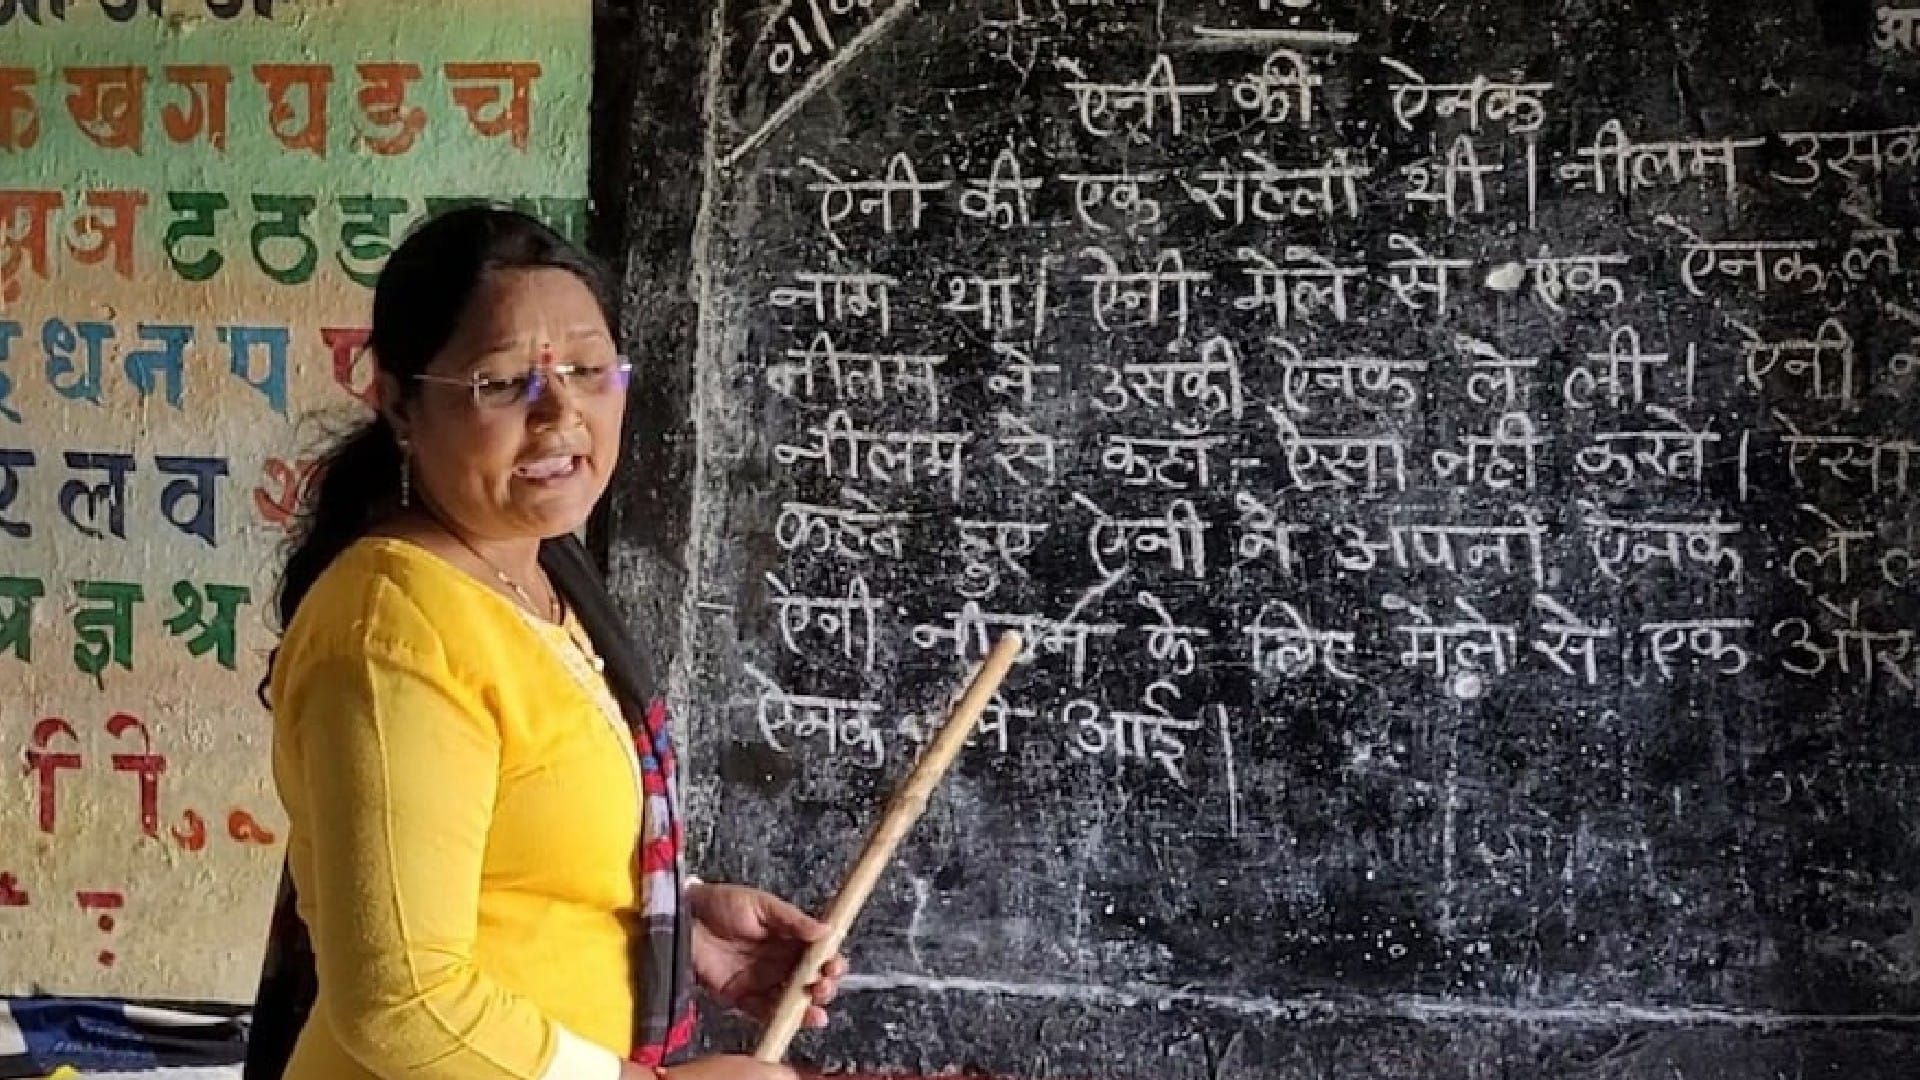 क ख ग घ ङ च
झ ञ ट ठ ड
ध न प
र ल व
त्र ज्ञ श्र
01/0
ऐनी की ऐनक
ऐनी की एक सहेली थी। नीलम उसक
नाम था। ऐनी मेले से एक ऐनक ले
नीलम ने उसकी ऐनक ले ली। ऐनी ने
नीलम से कहाँ - ऐसा नही करते। ऐसा
कहते हुए ऐनी ने अपनी ऐनक ले ल
ऐनी नीलम के लिए मेले से एक और
ऐनक ले आई।